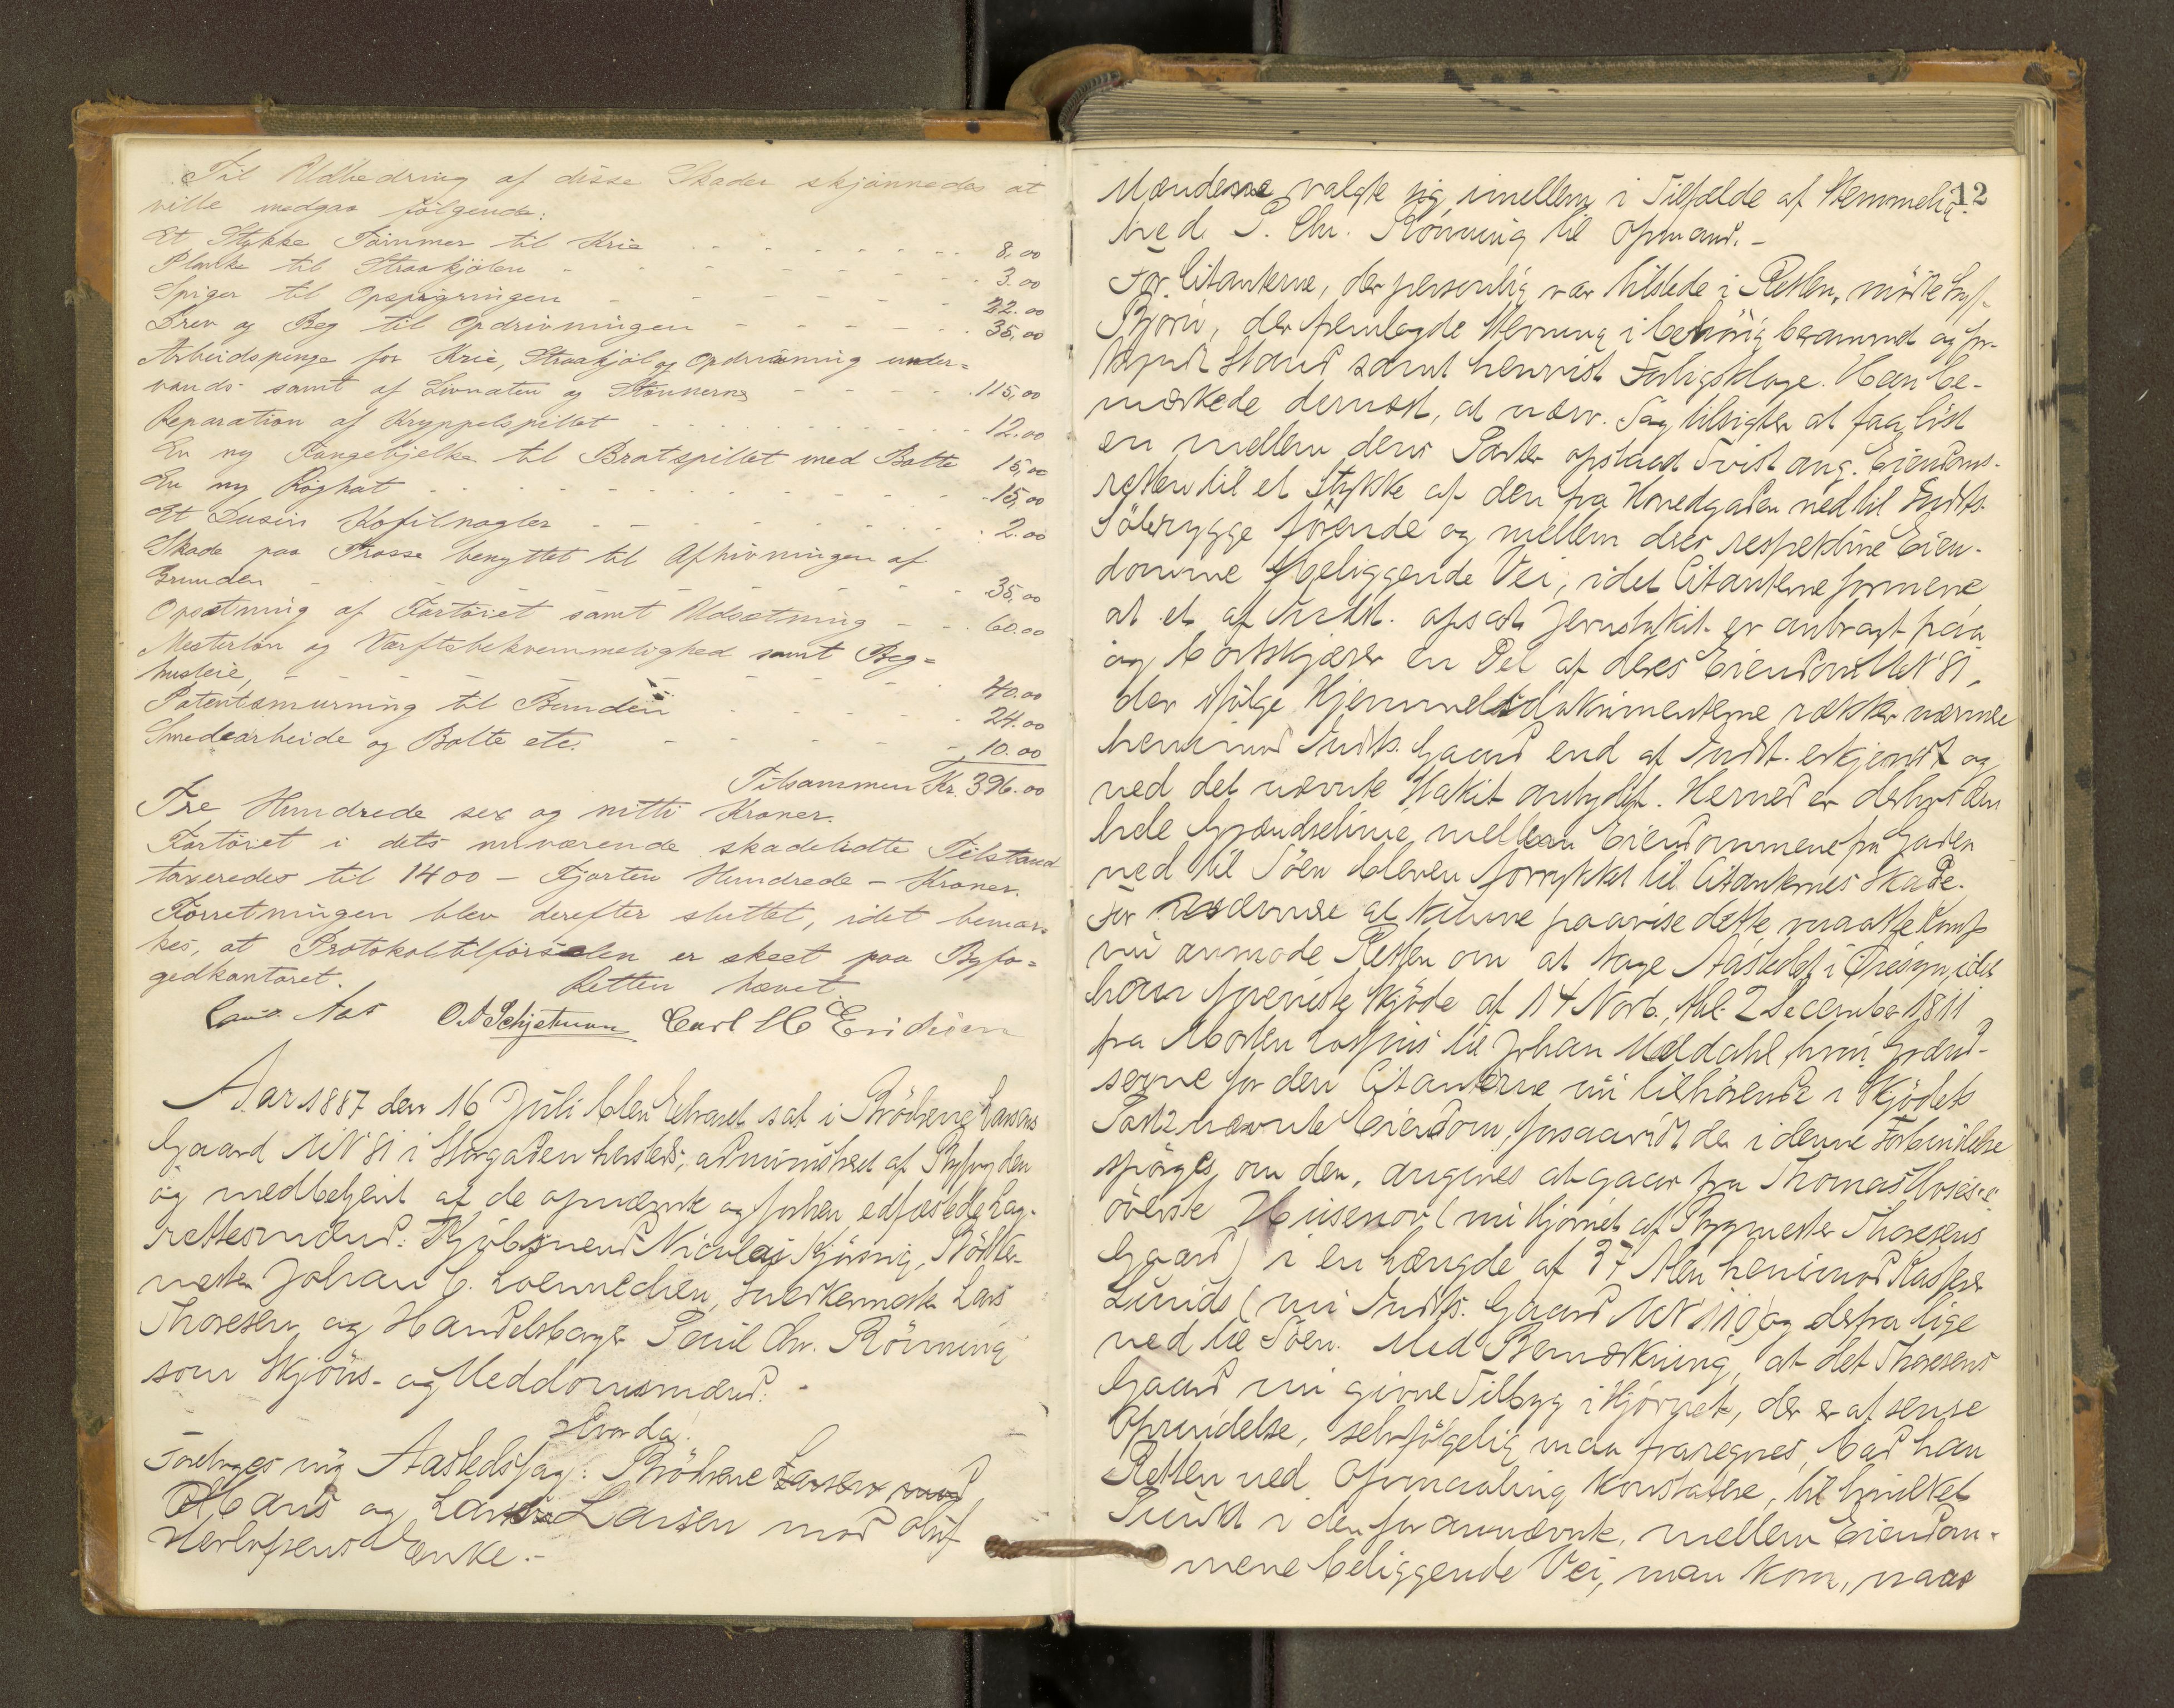 Til Udbedring af disse Skader skjønnedes at
ville medgaa følgende:
Et Stykke Tømmer til Krie - - - - 8,00
Planke til Straakjølen - - - - 3.00
Spiger til Opspigringen - - - - 22.00
Drev og Beg til Opdrivningen - - - - 35,00
Arbeidspenge for Krie, Straakjøl og Opdrivning under=
vands samt af Livnaten og Stønnerne - - - 115,00
Reparation af Kryppelspillet - - - - 12.00
En ny Fangebjelke til Bratspillet med Bolte 15,00
En ny Røghat - - - - 15,00
Et Dusin Kofilnagler - - - - 2.00
Skade paa Trosse benyttet til Afhivningen af
Grunden - - - - 35,00
Opsætning af Fartøiet samt Udsætning - - 60.00
Mesterløn og Værftsbekvemmelighed samt Beg=
husleie, - - - - 40.00
Patentsmurning til Bunden - - - - 24.00
Smedearbeide og Bolte etc. - - - - 10.00
Tilsammen Kr. 396.00
Tre Hundrede sex og nitti Kroner.
Fartøiet i dets nuværende skadelidte Tilstand
taxeredes til 1400 - Fjorten Hundrede - Kroner.
Forretningen blev derefter sluttet, idet bemær-
kes, at Protokoltilførselen er skeet paa Byfo=
gedkontoret.
Retten hævet
Aas O. A. Schjetman Carl H Eriksen
Aar 1887 den 16 Juli blev Extraret sat i Brødrene Larsens
Gaard MN 81 i Storgaden hersteds, administreret af Byfogden
og medbetjent af de opnævnte og forhen edfæstede Lag-
rettesmænd: Kjøbmænd Nicolai Kjønnig, Bødker-
mester Johan C. Loennechen, Snedkermester Lars
Thoresen og Handelsborger Paul Chr. Rønning
som Skjøns- og Meddomsmænd.
Hvorda:
Foretoges nÿ Aastedssag: Brødrene Larsen mod
Hans og Larsen mod Oluf
Herlofsens Enke.-
12
Mændene valgte sig imellem i Tilfælde af Stemmelig-
hed P. Chr. Rønning til Opmand.-
For Citanterne, der personlig var tilstede i Retten, mødte
Bjørn, der fremlagde Stevning i behørig berammet og for-
kyndt Stand samt henvist Forligsklage. Han be-
mærkede dernæst, at nærv. Sag tilsigter at faa løst
en mellem dens Parter opstaaet Tvist ang. Eiendoms-
retten til et Stykke af den fra Hovedgaden ned til Indts.
Søbrygge førende og mellem deres respektive Eien-
domme beliggende Vei, idet Citanterne formene
at et af Indst. opsat Jernstakit er anbragt paa
og bortskjærer en Del af deres Eiendom MN 81,
der ifølge Hjemmelsdokumenterne rækker nærmere
henimod Indts. Gaard end af Indst. erkjendt og
ved det nævnte Stakit antydet. Herved er derhos den
hele Grændselinie mellem Eiendommene fra Gaden
ned til Søen bleven forrykket til Citanternes Skade.
For nærmere at kunne paavise dette maatte Komp
nu anmode Retten om at tage Aastedet i Øiesyn, idet
han foreviste Skjøde af 14 Novb., thl. 2 December 1811
fra Morten til Johan Meldahl, hvori Grænd-
serne for den Citanterne nu tilhørende i Skjødets
Post 2 nævnte Eiendom, forsaavidt der i denne Forbindelse
spørges om den, angives at gaae fra Thomas
øverste Husenov (nu Hjørnet af Bygmester Thoresens
Gaard) i en Længde af 37 Alen henimod Kasserer
Lunds (nu Indts. Gaard MN 110) og derfra lige
ned til Søen. Med Bemærkning, at det Thoresens
Gaard nu givne Tilbyg i Hjørnet, der er af senere
Oprindelse, selvfølgelig maa fraregnes, bad han
Retten ved Opmaaling konstatere, til hvilket
Punkt i den foran nævnte, mellem Eiendom-
mene beliggende Vei, man kom, naar